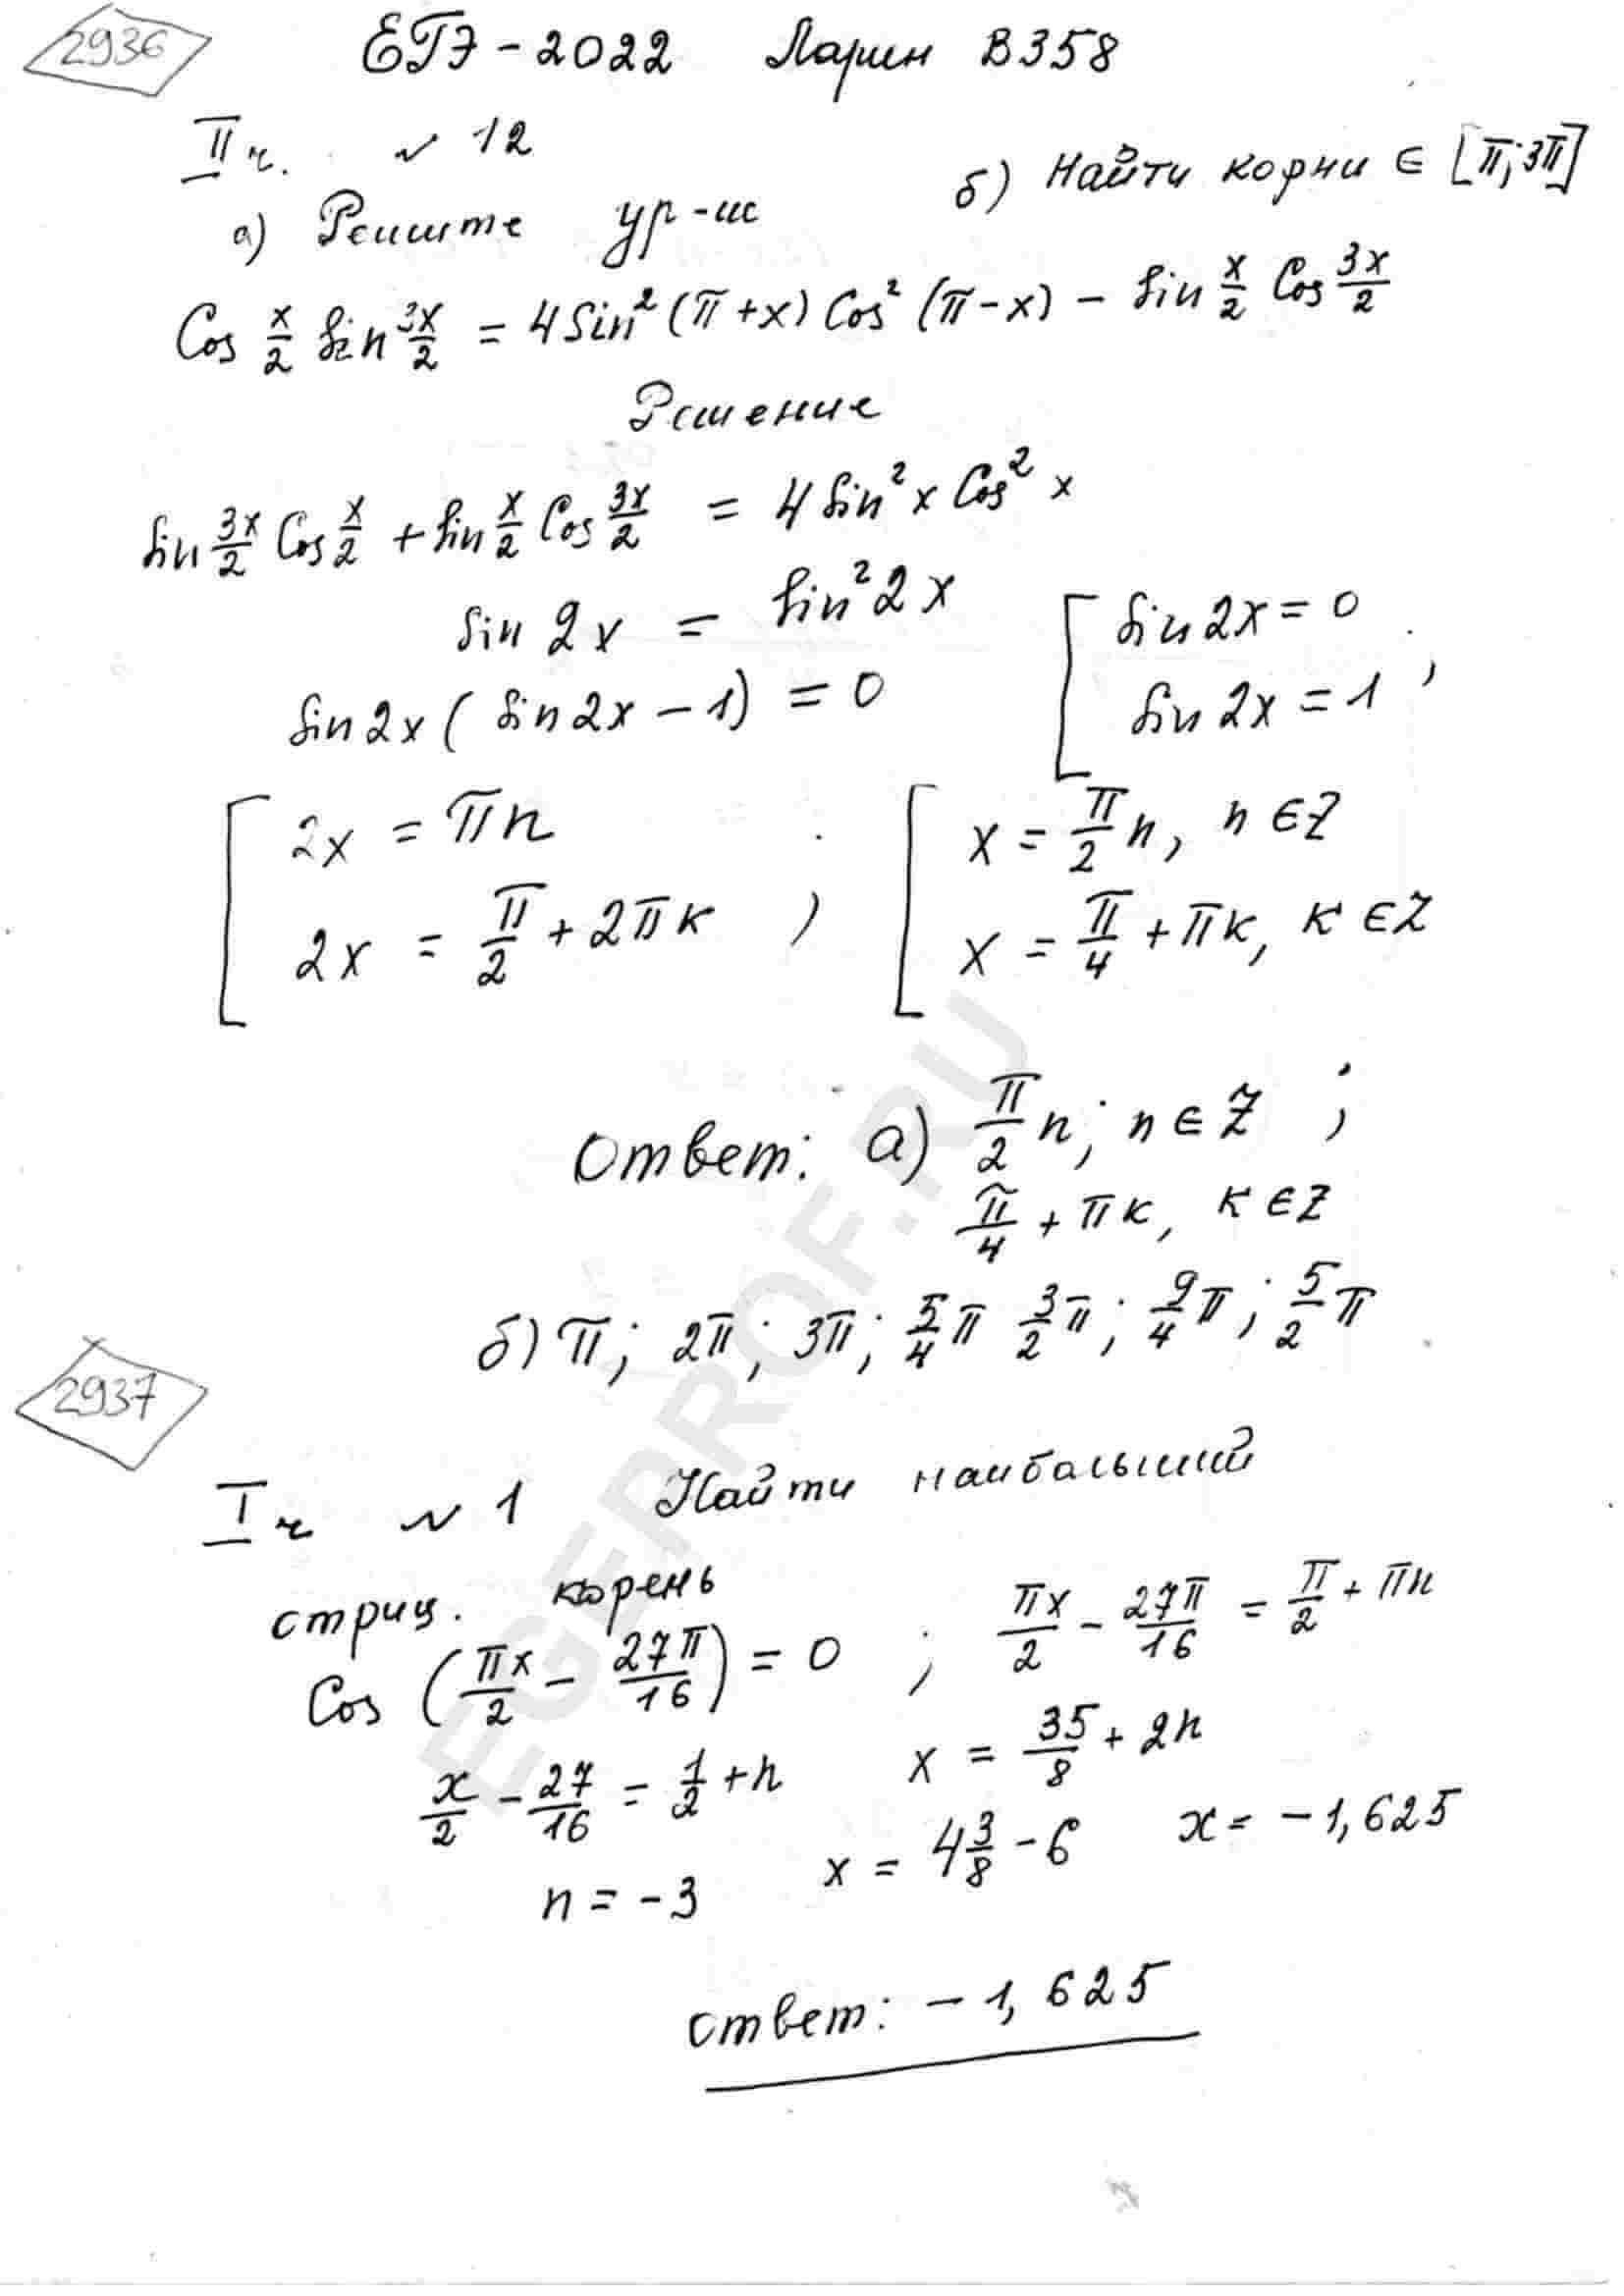 2936
ЕГЭ-2022 Ларин В358
II ч. N 12
а) Решите ур-ие б) Найти корни ∈ [π; 3π]
Cos x/2 Sin 3x/2 = 4 Sin² (π + x) Cos² (π - x) - Sin x/2 Cos 3x/2
Решение
Sin 3x/2 Cos x/2 + Sin x/2 Cos 3x/2 = 4 Sin² x Cos² x
Sin 2x = Sin² 2x
Sin 2x ( Sin 2x - 1) = 0 [ Sin 2x = 0 ; Sin 2x = 1
[ 2x = πn ; [ x = π/2 n, n ∈ Z
2x = π/2 + 2πк x = π/4 + πк, к ∈ Z
Ответ: а) π/2 n; n ∈ Z ;
π/4 + πк, к ∈ Z
б) π; 2π; 3π; 5/4 π 3/2 π; 9/4 π; 5/2 π
2937
I ч N 1 Найти наибольший
отриц. корень
Cos (πx/2 - 27π/16) = 0 ; πx/2 - 27π/16 = π/2 + πn
x/2 - 27/16 = 1/2 + n x = 35/8 + 2n
n = -3 x = 4 3/8 - 6 x = -1,625
Ответ: -1,625
EGEPROF.RU